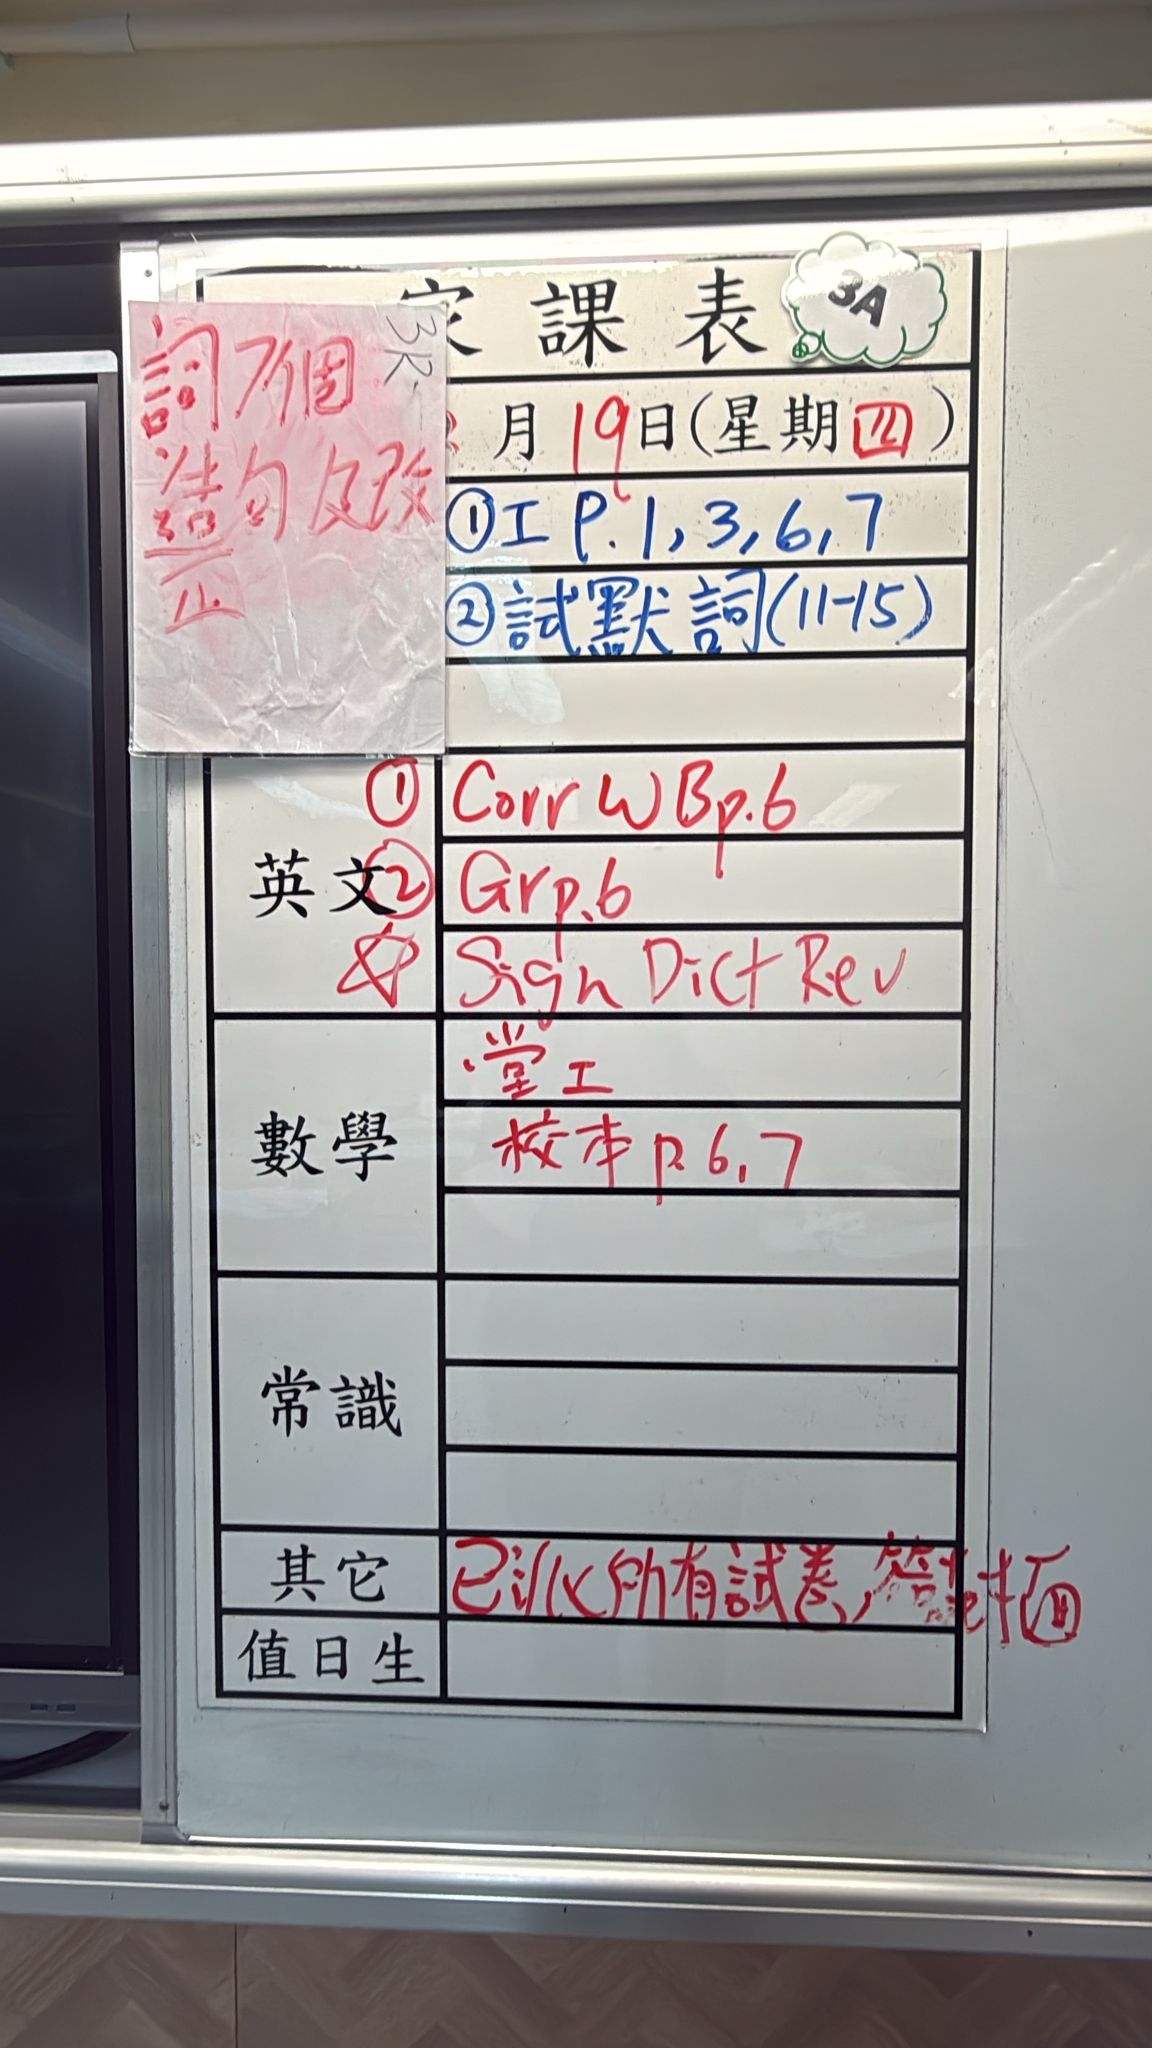 家課表
3A
月19日(星期四)
3R
詞7個
造句及改
正
①工 P.1,3,6,7
②試默詞(11-15)
英文
① Corr WB p.6
② Gr p.6
☆ Sign Dict Rev
數學
堂工
校本 p.6,7
常識
其它
已派所有試卷,簽
值日生